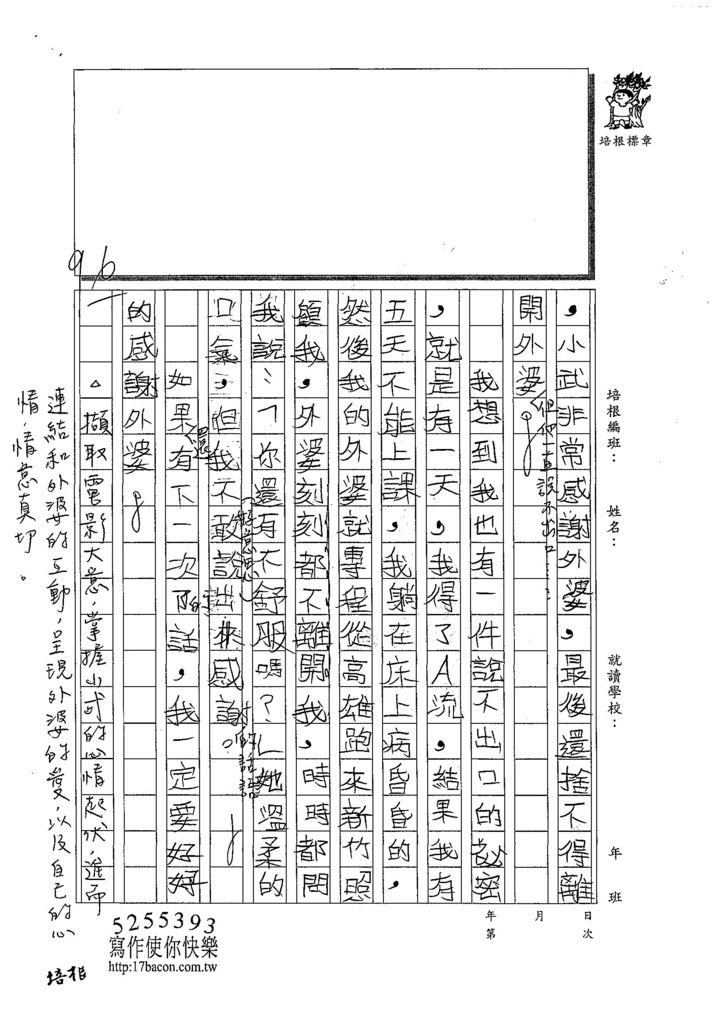 培根標章
培根編班：
姓名：
就讀學校：
年 班
，小武非常感謝外婆，最後還捨不得離
開外婆。
但他一直說不出口……
我想到我也有一件說不出口的祕密
，就是有一天，我得了A流，結果我有
五天不能上課，我躺在床上病昏昏的，
然後我的外婆就專程從高雄跑來新竹照
顧我，外婆刻刻都不離開我，時時都問
我說：「你還有不舒服嗎？」她溫柔的
口氣，但我不敢說出來感謝。
(好意思)
的話語
如果有下一次的話，我一定要好好
還
的感謝外婆。
96
△擷取電影大意，掌握小武的心情起伏，進而
連結和外婆的互動，呈現外婆的愛，以及自己的心
情，情意真切。
培根
年 月 日
第 次
5255393
寫作使你快樂
http:17bacon.com.tw